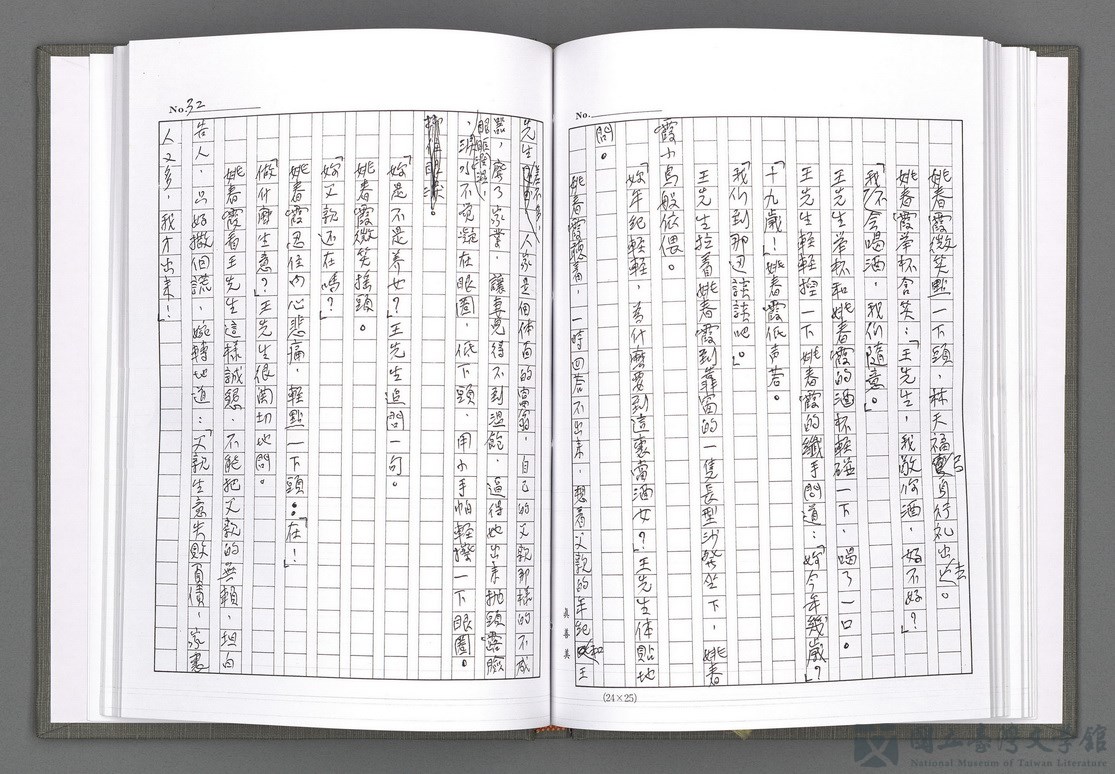 No.
姚春霞微笑點一下頭，林天福自行礼出去。
姚春霞举杯含笑：「王先生，我敬你酒，好不好？」
「我不会喝酒，我们随意。」
王先生举杯和姚春霞的酒杯輕碰一下，喝了一口。
王先生輕輕控一下姚春霞的纖手問道：「妳今年幾歲？」
「十九歲！」姚春霞低声答。
「我们到那边談談吧。」
王先生拉着姚春霞到靠窗的一隻長型沙發坐下，姚春
霞小鳥般依偎。
「妳年紀輕輕，為什麼要到這裏當酒女？」王先生体貼地
問。
姚春霞聽着，一時回答不出来，想着父親的年紀和王
真善美
(24×25)
No. 32
先生差不多，人家是個体面的富翁，自己的父親那樣的不成
器，廢了家業，讓妻兒得不到溫飽，逼得她出来抛頭露臉
，淚水不覚凝在眼圈，低下頭，用小手帕輕擦一下眼圈。
「妳是不是养女？」王先生追問一句。
姚春霞微笑摇頭。
「妳父親还在嗎？」
姚春霞忍住內心悲痛，輕點一下頭：「在！」
「做什麼生意？」王先生很関切地問。
姚春霞看王先生這樣誠懇，不能把父親的無賴，坦白
告人，只好撒個謊，婉轉地道：「父親生意失敗負債，家裏
人又多，我才出来！」
國立臺灣文學館
National Museum of Taiwan Literature